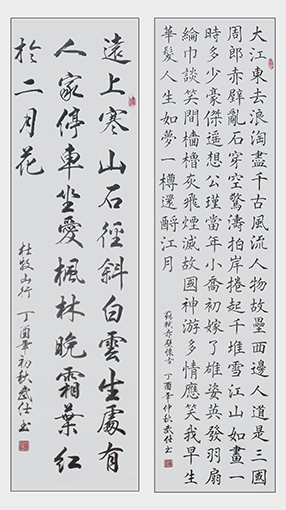 大江東去浪淘盡千古風流人物故壘西邊人道是三國
周郎赤壁亂石穿空驚濤拍岸捲起千堆雪江山如畫一
時多少豪傑遙想公瑾當年小喬初嫁了雄姿英發羽扇
綸巾談笑間檣櫓灰飛煙滅故國神游多情應笑我早生
華髮人生如夢一樽還酹江月
蘇軾赤壁懷古 丁酉年仲秋武仕书
遠上寒山石徑斜白雲生處有
人家停車坐愛楓林晚霜葉紅
於二月花
杜牧山行 丁酉年初秋武仕书